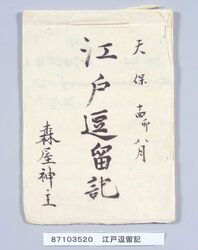 天保十四卯八月
江戸逗留記
森屋神主
87103520 江戸逗留記